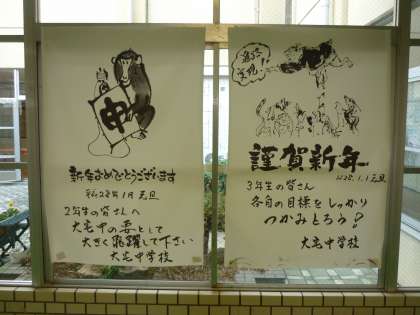 申
新年おめでとうございます
平成28年1月 元旦
2年生の皆さんへ
大宅中の要として
大きく飛躍して下さい
大宅中学校
謹賀新年
H28.1.1 元旦
3年生の皆さん
各自の目標をしっかり
つかみとろう?
大宅中学校